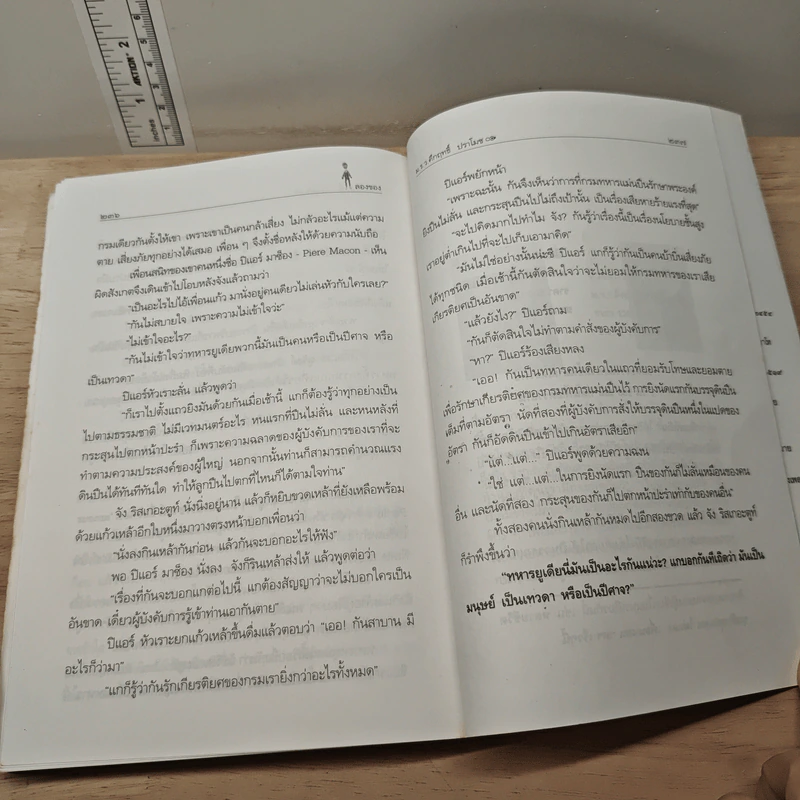 Inches
1
ACTION
2
๒๓๖
ลองของ
กรมเดียวกันตั้งให้เขา เพราะเขาเป็นคนกล้าเสี่ยง ไม่กลัวอะไรแม้แต่ความ
ตาย เสี่ยงภัยทุกอย่างได้เสมอ เพื่อน ๆ จึงตั้งชื่อหลังให้ด้วยความนับถือ
เพื่อนสนิทของเขาคนหนึ่งชื่อ ปิแอร์ มาซ็อง - Piere Macon - เห็น
ผิดสังเกตจึงเดินเข้าไปโอบหลังจังแล้วถามว่า
"เป็นอะไรไปไอ้เพื่อนแก้ว มานั่งอยู่คนเดียวไม่เล่นหัวกับใครเลย?"
"กันไม่สบายใจ เพราะความไม่เข้าใจว่ะ"
"ไม่เข้าใจอะไร?"
"กันไม่เข้าใจว่าทหารยูเดียพวกนี้มันเป็นคนหรือเป็นปีศาจ หรือ
เป็นเทวดา"
ปิแอร์หัวเราะลั่น แล้วพูดว่า
"ก็เราไปตั้งแถวยิงมันด้วยกันเมื่อเช้านี้ แกก็ต้องรู้ว่าทุกอย่างเป็น
ไปตามธรรมชาติ ไม่มีเวทมนตร์อะไร หนแรกที่ปืนไม่ลั่น และหนหลังที่
กระสุนไปตกหน้าปะรำ ก็เพราะความฉลาดของผู้บังคับการของเราที่จะ
ทำตามความประสงค์ของผู้ใหญ่ นอกจากนั้นท่านก็สามารถคำนวณแรง
ดินปืนได้ทันทีทันใด ทำให้ลูกปืนไปตกที่ไหนก็ได้ตามใจท่าน"
จัง ริสเกอะตูท์ นั่งนิ่งอยู่นาน แล้วก็หยิบขวดเหล้าที่ยังเหลือพร้อม
ด้วยแก้วเหล้าอีกใบหนึ่งมาวางตรงหน้าบอกเพื่อนว่า
"นั่งลงกินเหล้ากันก่อน แล้วกันจะบอกอะไรให้ฟัง"
พอ ปิแอร์ มาซ็อง นั่งลง จังก็รินเหล้าส่งให้ แล้วพูดต่อว่า
"เรื่องที่กันจะบอกแกต่อไปนี้ แกต้องสัญญาว่าจะไม่บอกใครเป็น
อันขาด เดี๋ยวผู้บังคับการรู้เข้าท่านเอากันตาย"
ปิแอร์ หัวเราะยกแก้วเหล้าขึ้นดื่มแล้วตอบว่า "เออ! กันสาบาน มี
อะไรก็ว่ามา"
"แกก็รู้ว่ากันรักเกียรติยศของกรมเรายิ่งกว่าอะไรทั้งหมด"
ม.ร.ว.คึกฤทธิ์ ปราโมช
๒๓๗
ปิแอร์พยักหน้า
"เพราะฉะนั้น กันจึงเห็นว่าการที่กรมทหารแม่นปืนรักษาพระองค์
ยิงปืนไม่ลั่น และกระสุนปืนไปไม่ถึงเป้านั้น เป็นเรื่องเสียหายร้ายแรงที่สุด"
"จะไปคิดมากไปทำไม จัง? กันรู้ว่าเรื่องนี้เป็นเรื่องนโยบายชั้นสูง
เราอยู่ต่ำเกินไปที่จะไปเก็บเอามาคิด"
"มันไม่ใช่อย่างนั้นน่ะซี ปิแอร์ แกก็รู้ว่ากันเป็นคนบ้าบิ่นเสี่ยงภัย
ได้ทุกชนิด เมื่อเช้านี้กันตัดสินใจว่าจะไม่ยอมให้กรมทหารของเราเสีย
เกียรติยศเป็นอันขาด"
"แล้วยังไง?" ปิแอร์ถาม
"กันก็ตัดสินใจไม่ทำตามคำสั่งของผู้บังคับการ"
"หา?" ปิแอร์ร้องเสียงหลง
"เออ! กันเป็นทหารคนเดียวในแถวที่ยอมรับโทษและยอมตาย
เพื่อรักษาเกียรติยศของกรมทหารแม่นปืนไว้ การยิงนัดแรกกันบรรจุดินปืน
เต็มที่ตามอัตรา นัดที่สองที่ผู้บังคับการสั่งให้บรรจุดินปืนหนึ่งในแปดของ
อัตรา กันก็อัดดินปืนเข้าไปเกินอัตราเสียอีก"
"แต่...แต่..." ปิแอร์พูดด้วยความฉงน
"ใช่ แต่...แต่...ในการยิงนัดแรก ปืนของกันก็ไม่ลั่นเหมือนของคน
อื่น และนัดที่สอง กระสุนของกันก็ไปตกหน้าปะรำเท่ากับของคนอื่น"
ทั้งสองคนนั่งกินเหล้ากันหมดไปอีกสองขวด แล้ว จัง ริสเกอะตูท์
ก็รำพึงขึ้นว่า
"ทหารยูเดียนี่มันเป็นอะไรกันแน่วะ? แกบอกกันทีเถิดว่า มันเป็น
มนุษย์ เป็นเทวดา หรือเป็นปีศาจ?"